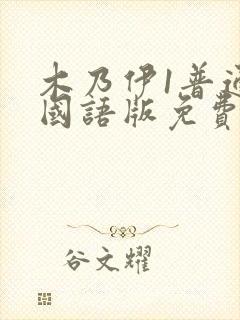 木乃伊1普通
國語版免費
谷文耀